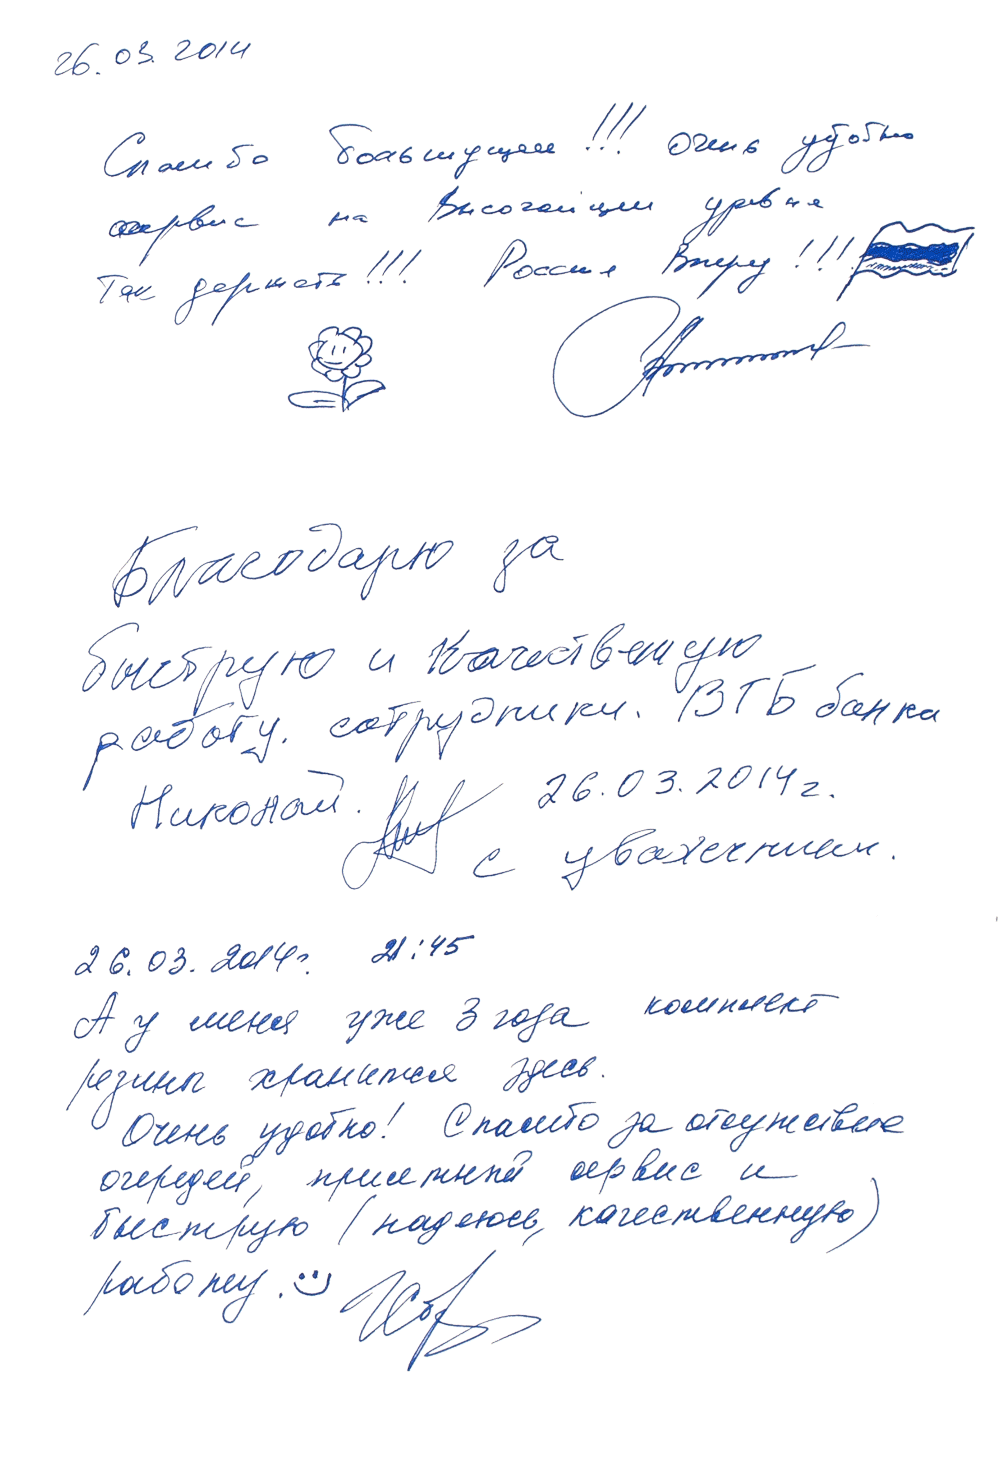 26.03.2014
Спасибо большущее!!! Очень удобно
сервис на Высочайшем уровне
Так держать!!! Россия Вперед!!!
Благодарю за
быструю и качественую
работу. сотрудники. ВТБ банка
Николай. 26.03.2014г.
с уважением.
26.03.2014г. 21:45
А у меня уже 3 года комплект
резины хранится здесь.
Очень удобно! Спасибо за отсутствие
очередей, приятный сервис и
быструю (надеюсь, качественную)
работу.